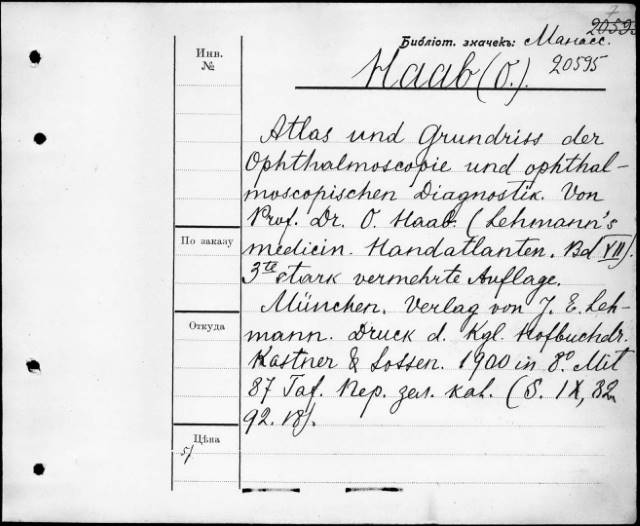 7
20595
Библіот. значекъ: Манасс.
20595
Haab (O.).
Инв.
№
Atlas und Grundriss der
Ophthalmoscopie und ophthal-
moscopischen Diagnostik. Von
Prof. Dr. O. Haab. (Lehmann's
По заказу
medicin. Handatlanten. Bd VII).
3te stark vermehrte Auflage.
München. Verlag von J. E. Leh-
Откуда
mann. Druck d. Kgl. Hofbuchdr.
Kastner & Lossen. 1900 in 8.° Mit
87 Taf. Пер. зел. кал. (S. IX, 82.
92. 18).
Цѣна
5/